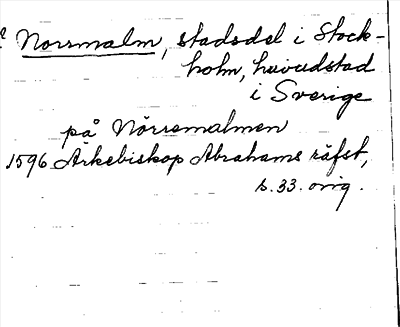 Norrmalm, stadsdel i Stock-
holm, huvudstad
i Sverige
på Norremalmen
1596 Ärkebiskop Abrahams räfst,
s. 33. orig.